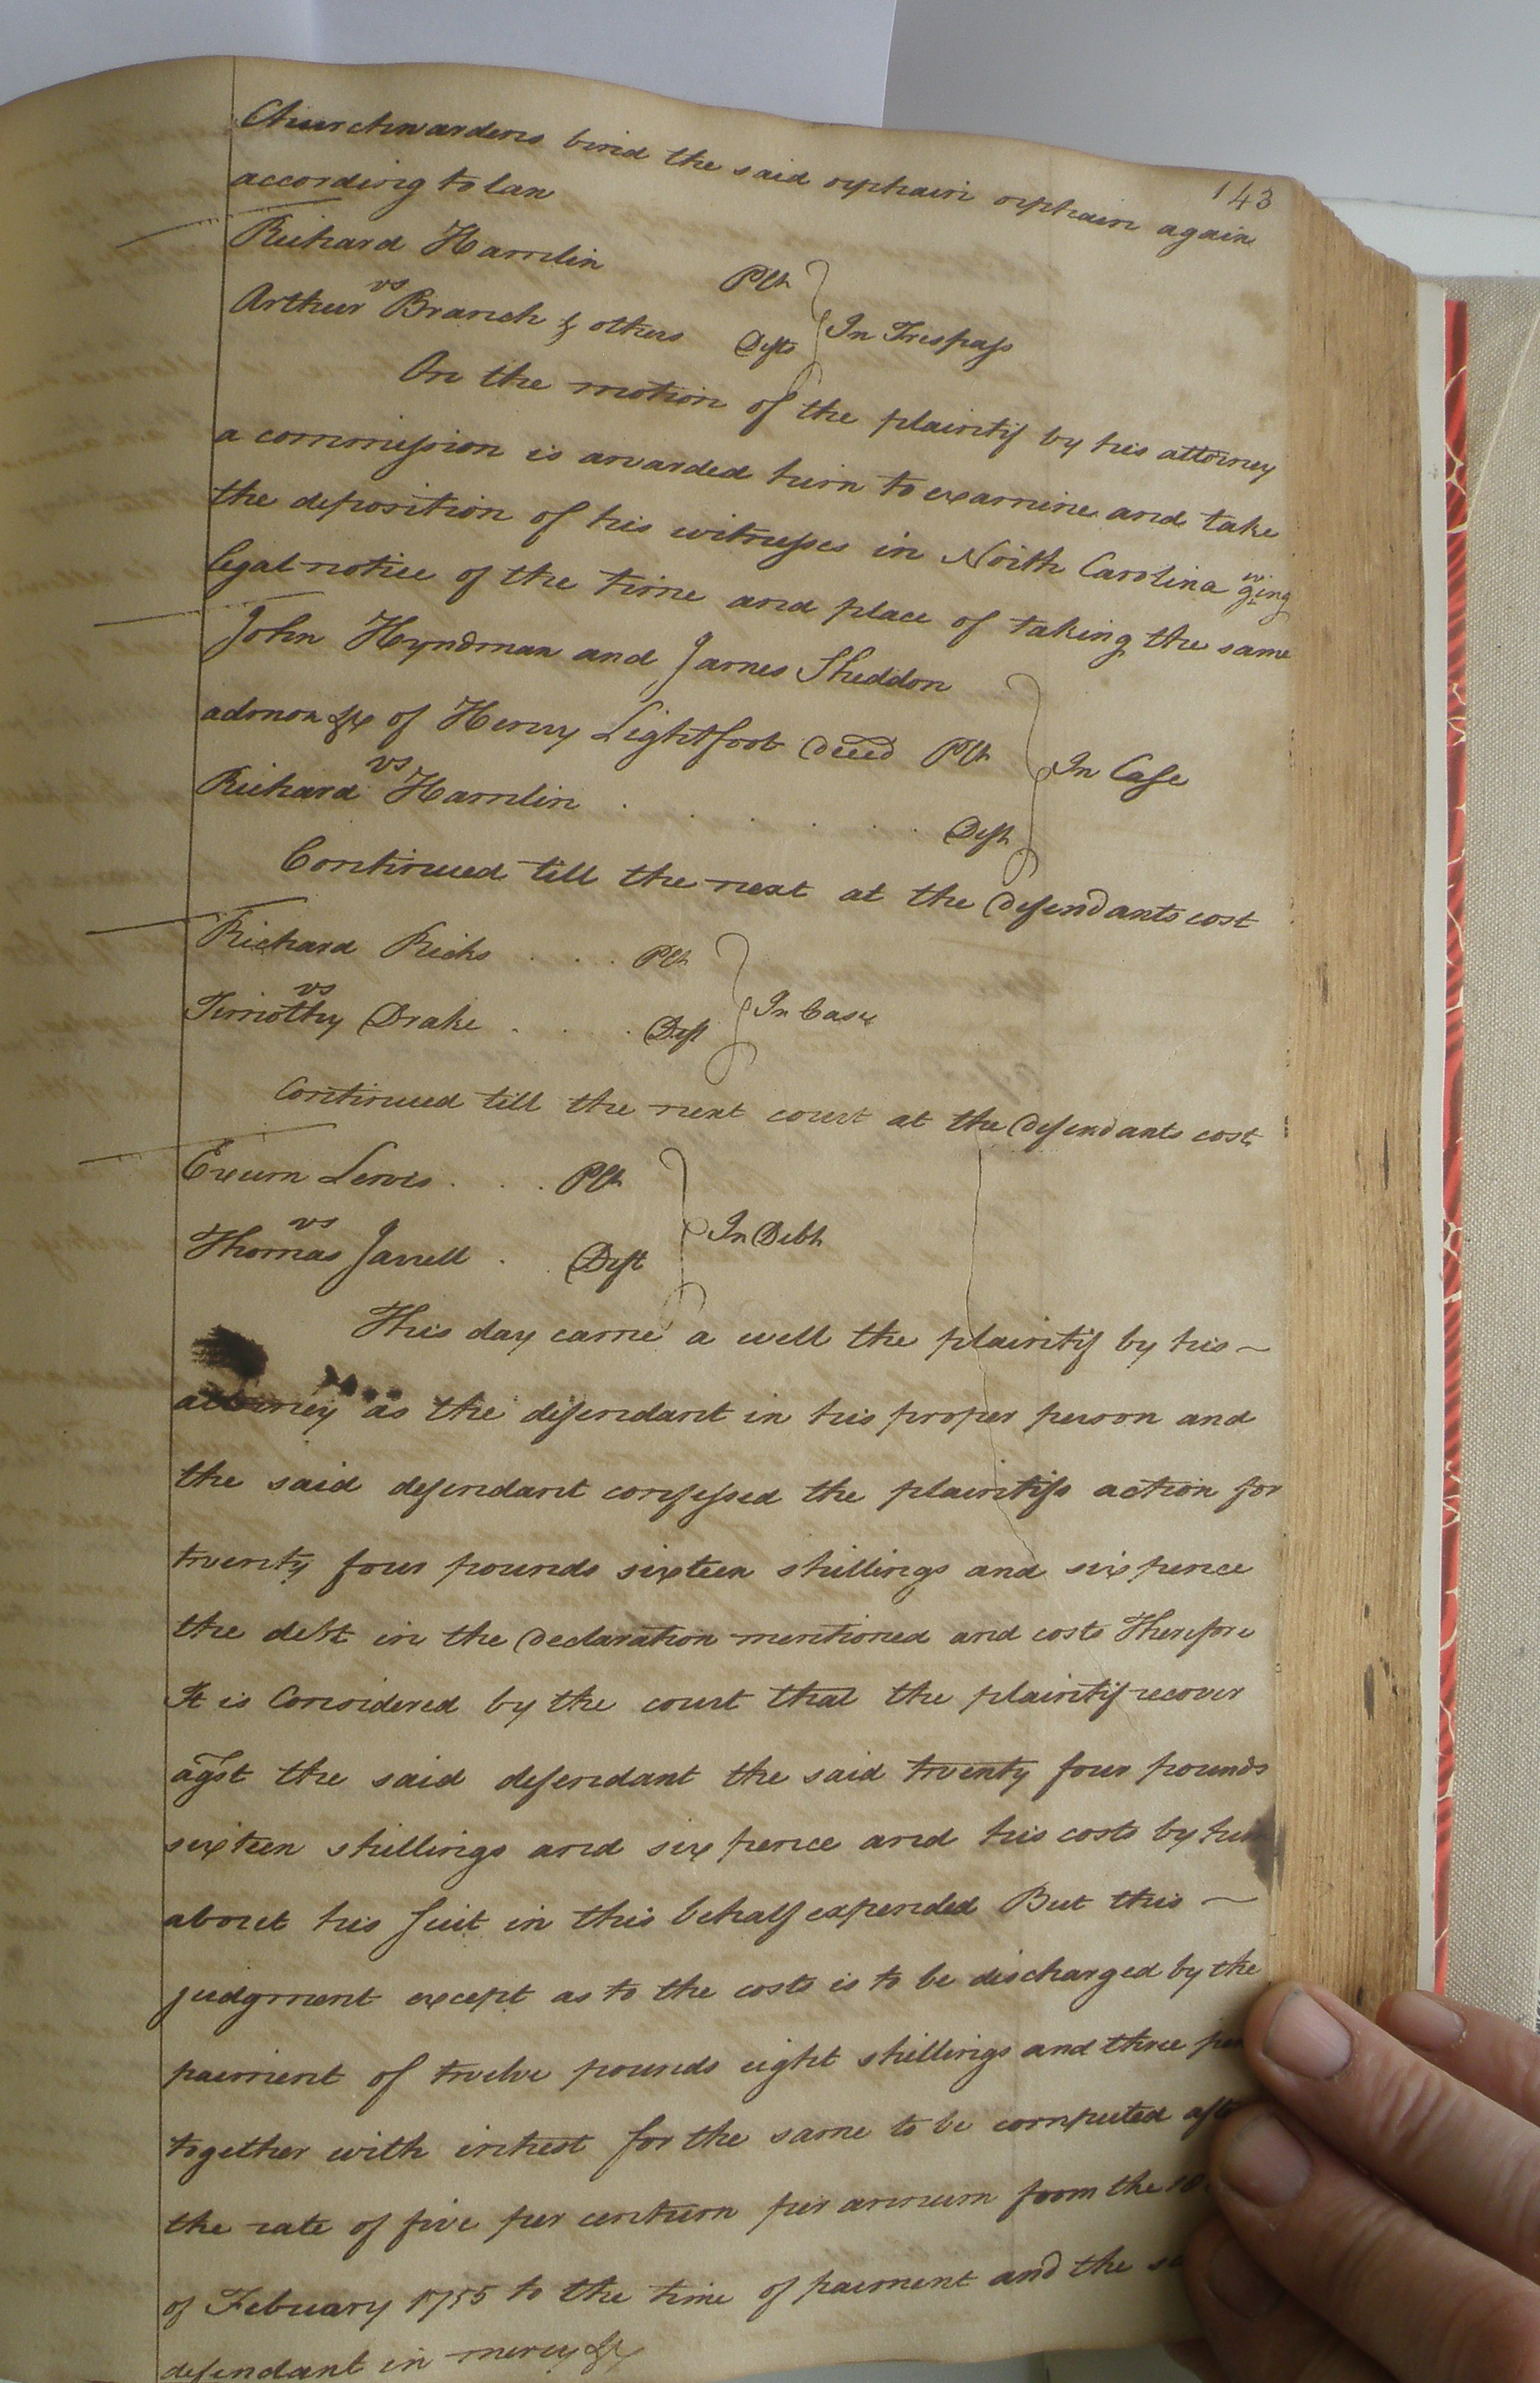 143
Churchwardens bind the said orphan orphan again
according to law
Richard Hamlin Plt
vs
Arthur Branch & others Defts
In Trespass
On the motion of the plaintif by his attorney
a commission is awarded him to examine and take
the deposition of his witnesses in North Carolina giving
legal notice of the time and place of taking the same
John Hyndman and James Sheddon
admon &c of Henry Lightfoot deced Plt
vs
Richard Hamlin . . . . . Deft
In Case
Continued till the next at the defendants cost
Richard Ricks . . . . Plt
vs
Timothy Drake . . . . Deft
In Case
Continued till the next court at the defendants cost
Exum Lewis . . . Plt
vs
Thomas Jarrell . . Deft
In Debt
This day came a well the plaintif by his
attorney as the defendant in his proper person and
the said defendant confessed the plaintifs action for
twenty four pounds sixteen shillings and six pence
the debt in the declaration mentioned and costs Therefore
It is Considered by the court that the plaintif recover
agst the said defendant the said twenty four pounds
sixteen shillings and six pence and his costs by him
about his suit in this behalf expended But this
judgment except as to the costs is to be discharged by the
paiment of twelve pounds eight shillings and three
together with intrest for the same to be computed
the rate of five per centum per annum from the
of Febuary 1755 to the time of paiment and the
defendant in mercy &c